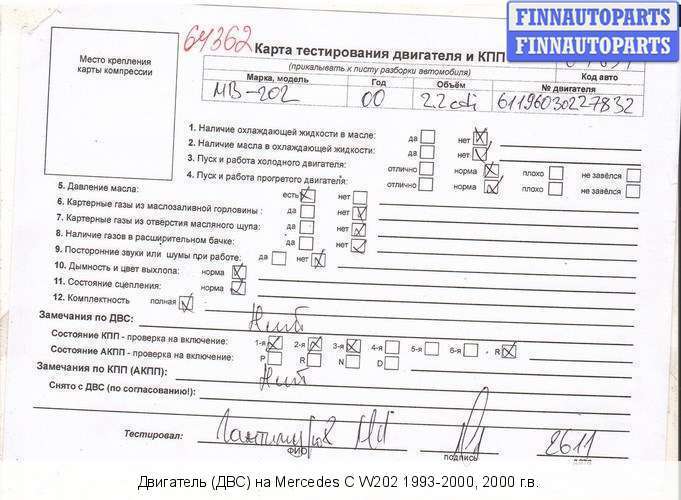 FINNAUTOPARTS
FINNAUTOPARTS
64362
Карта тестирования двигателя и КПП
(прикалывать к листу разборки автомобиля)
Место крепления
карты компрессии
Марка, модель Год Объём № двигателя Код авто
МВ-202 00 2.2 cdi 61196030227832
1. Наличие охлаждающей жидкости в масле: да нет
2. Наличие масла в охлаждающей жидкости: да нет
3. Пуск и работа холодного двигателя: отлично норма плохо не завёлся
4. Пуск и работа прогретого двигателя: отлично норма плохо не завёлся
5. Давление масла: есть нет
6. Картерные газы из маслозаливной горловины : да нет
7. Картерные газы из отверстия масляного щупа: да нет
8. Наличие газов в расширительном бачке: да нет
9. Посторонние звуки или шумы при работе: да нет
10. Дымность и цвет выхлопа: норма
11. Состояние сцепления: норма
12. Комплектность полная
Замечания по ДВС: Нит
Состояние КПП - проверка на включение: 1-я 2-я 3-я 4-я 5-я 6-я - R
Состояние АКПП - проверка на включение: P R N D
Замечания по КПП (АКПП): Нит
Снято с ДВС (по согласованию!):
Тестировал: 2611
ФИО подпись дата
Двигатель (ДВС) на Mercedes C W202 1993-2000, 2000 г.в.